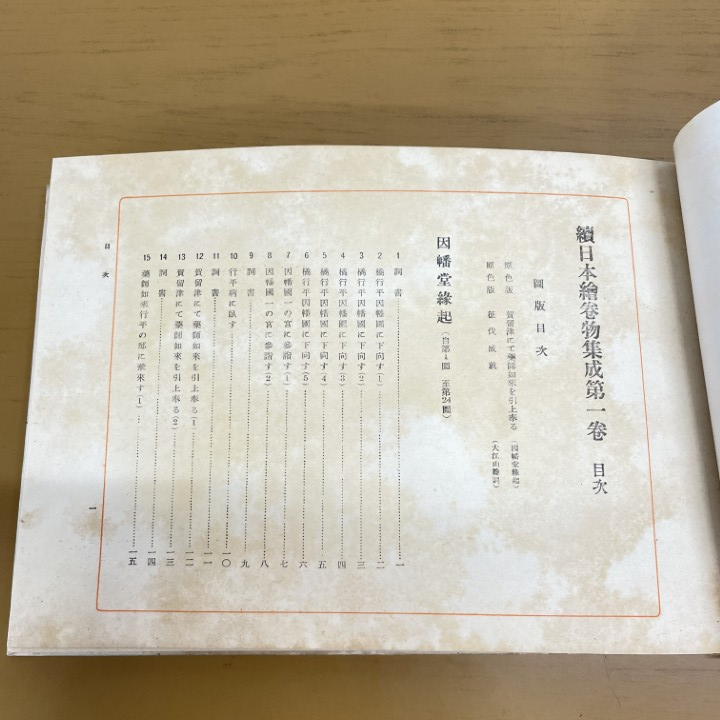 續日本繪卷物集成第一卷　目次
圖版目次
原色版　賀留津にて藥師如來を引上奉る（因幡堂緣起）
原色版　（大江山繪詞）
因幡堂緣起（自第1圖　至第24圖）
1　詞書……一
2　橘行平因幡國に下向す（1）……二
3　橘行平因幡國に下向す（2）……三
4　橘行平因幡國に下向す（3）……四
5　橘行平因幡國に下向す（4）……五
6　橘行平因幡國に下向す（5）……六
7　因幡國一の宮に參詣す（1）……七
8　因幡國一の宮に參詣す（2）……八
9　詞書……九
10　行平病に臥す……一〇
11　詞書……一一
12　賀留津にて藥師如來を引上奉る（1）……一二
13　賀留津にて藥師如來を引上奉る（2）……一三
14　詞書……一四
15　藥師如來行平の邸に飛來す（1）……一五
目次
一